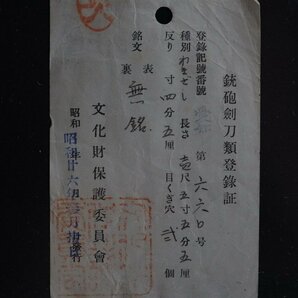 銃砲劍刀類登錄証
登錄記號番號 第六六〇号
種別 わきざし 長さ 壱尺五寸五分五厘
反り 寸四分五厘 目くぎ穴 弐個
銘文 表 無銘
裏
昭和廿六年 月 日
文化財保護委員會